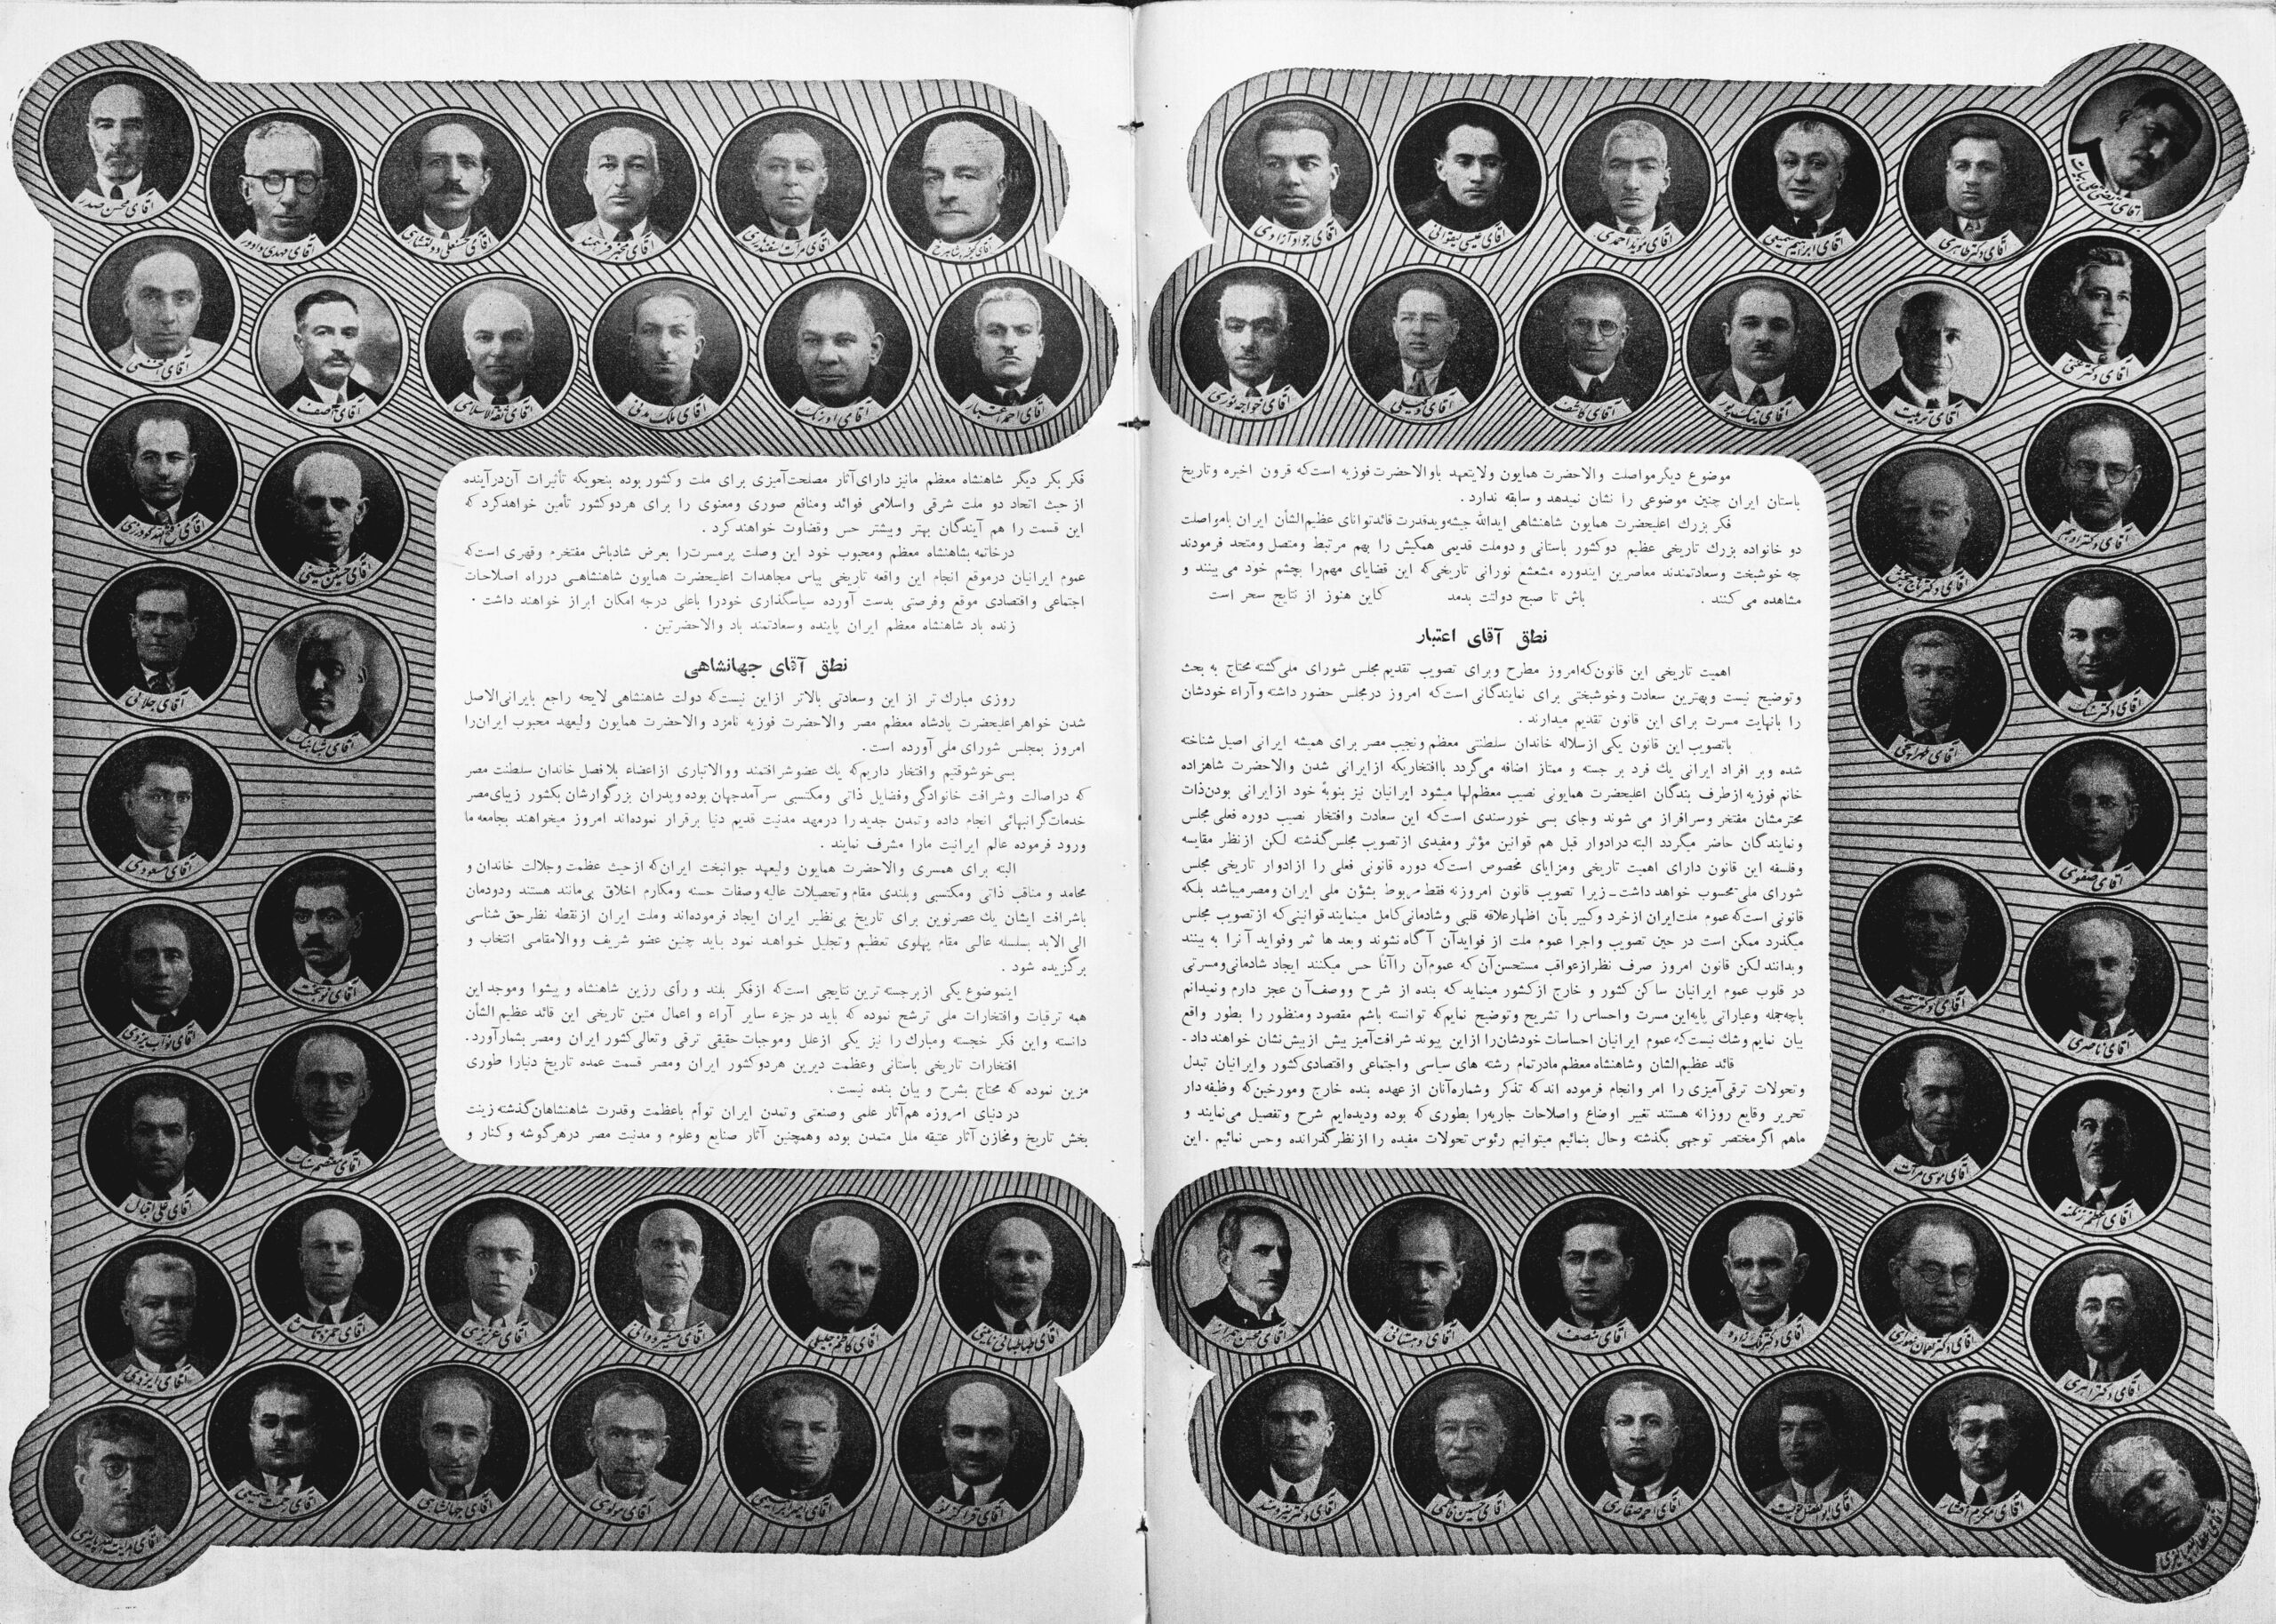 آقای جواد آزادی
آقای عیسی لیقوانی
آقای مؤید احمدی
آقای ابراهیم سمیعی
آقای دکتر طاهری
آقای مرتضی قلی بیات
آقای خواجه نوری
آقای وکیلی
آقای کاشف
آقای نیک پور
آقای تربیت
آقای دکتر غنی
آقای دکتر ادهم
آقای دکتر شک
آقای طهرانچی
آقای صفوی
آقای دکتر سمیعی
آقای ناصری
آقای موسی مرآت
آقای اعظم زنگنه
موضوع دیگر مواصلت والاحضرت همایون ولایتعهد باوالاحضرت فوزیه است‌که قرون اخیره وتاریخ
باستان ایران چنین موضوعی را نشان نمیدهد و سابقه ندارد .
فکر بزرك اعلیحضرت همایون شاهنشاهی ایدالله جیشه‌وبدقدرت قائدتوانای عظیم‌الشأن ایران بامواصلت
دو خانواده بزرك تاریخی عظیم دوکشور باستانی ودوملت قدیمی همکیش را بهم مرتبط ومتصل ومتحد فرمودند
چه خوشبخت وسعادتمندند معاصرین ایندوره مشعشع نورانی تاریخی‌که این قضایای مهم‌را بچشم خود می‌بینند و
مشاهده می‌کنند . باش تا صبح دولتت بدمد کاین هنوز از نتایج سحر است
نطق آقای اعتبار
اهمیت تاریخی این قانون‌که‌امروز مطرح وبرای تصویب تقدیم مجلس شورای ملی‌گشته محتاج به بحث
وتوضیح نیست وبهترین سعادت وخوشبختی برای نمایندگانی است‌که امروز درمجلس حضور داشته وآراء خودشان
را بانهایت مسرت برای این قانون تقدیم میدارند .
باتصویب این قانون یکی ازسلاله خاندان سلطنتی معظم ونجیب مصر برای همیشه ایرانی اصیل شناخته
شده وبر افراد ایرانی یك فرد بر جسته و ممتاز اضافه می‌گردد باافتخاریکه ازایرانی شدن والاحضرت شاهزاده
خانم فوزیه ازطرف بندگان اعلیحضرت همایونی نصیب معظم‌لها میشود ایرانیان نیز بنوبهٔ خود ازایرانی بودن‌ذات
محترمشان مفتخر وسرافراز می شوند وجای بسی خورسندی است‌که این سعادت وافتخار نصیب دوره فعلی مجلس
ونمایندگان حاضر میگردد البته درادوار قبل هم قوانین مؤثر ومفیدی ازتصویب مجلس‌گذشته لکن ازنظر مقایسه
وفلسفه این قانون دارای اهمیت تاریخی ومزایای مخصوص است‌که دوره قانونی فعلی را ازادوار تاریخی مجلس
شورای ملی‌محسوب خواهد داشت ـ زیرا تصویب قانون امروزنه فقط مربوط بشؤن ملی ایران ومصرمیباشد بلکه
قانونی است‌که عموم ملت‌ایران ازخرد وکبیر بآن اظهارعلاقه قلبی وشادمانی‌کامل مینمایند قوانینی‌که ازتصویب مجلس
میگذرد ممکن است در حین تصویب واجرا عموم ملت از فوایدآن آگاه نشوند وبعد ها ثمر وفواید آنرا به بینند
وبدانند لکن قانون امروز صرف نظرازعواقب مستحسن‌آن‌که عموم‌آن راآناً حس میکنند ایجاد شادمانی‌ومسرتی
در قلوب عموم ایرانیان ساکن کشور و خارج ازکشور مینماید که بنده از شرح ووصف‌آن عجز دارم ونمیدانم
باچه‌جمله وعباراتی پایه‌این مسرت واحساس را تشریح وتوضیح نمایم‌که توانسته باشم مقصود ومنظور را بطور واقع
بیان نمایم وشك نیست‌که عموم ایرانیان احساسات خودشان‌را ازاین پیوند شرافت‌آمیز بیش ازپیش‌نشان خواهند داد ـ
قائد عظیم‌الشان وشاهنشاه معظم مادرتمام رشته های سیاسی واجتماعی واقتصادی‌کشور وایرانیان تبدل
وتحولات ترقی‌آمیزی را امر وانجام فرموده اندکه تذکر وشماره‌آنان ازعهده بنده خارج ومورخین‌که وظیفه‌دار
تحریر وقایع روزانه هستند تغییر اوضاع واصلاحات جاریه‌را بطوری‌که بوده ودیده‌ایم شرح وتفصیل می‌نمایند و
ماهم اگرمختصر توجهی بگذشته وحال بنمائیم میتوانیم رئوس تحولات مفیده را ازنظرگذرانده وحس نمائیم . این
آقای دبستانی
آقای منصف
آقای دکتر ملک زاده
آقای دکتر لقمان نهورای
آقای دکتر اهری
آقای دکتر نیرومند
آقای حسین قاسمی
آقای احمد صفاری
آقای مکرم افشار
آقای محسن صدر
آقای مهدی داودر
آقای حسنعلی دولتشاهی
آقای مخبر فرهمند
آقای مرآت اسفندیاری
آقای کیخسرو شاهرخ
آقای آصف
آقای ثقة‌الاسلامی
آقای ملک مدنی
آقای اورنگ
آقای احمد اعتبار
آقای جلائی
آقای مسعودی
آقای نوبخت
آقای نواب یزدی
آقای معتصم سنک
آقای علی اقبال
فکر بکر دیگر شاهنشاه معظم مانیز دارای‌آثار مصلحت‌آمیزی برای ملت وکشور بوده بنحویکه تأثیرات آن‌درآینده
از حیث اتحاد دو ملت شرقی واسلامی فوائد ومنافع صوری ومعنوی را برای هردوکشور تأمین خواهدکرد که
این قسمت را هم آیندگان بهتر وبیشتر حس وقضاوت خواهندکرد .
درخاتمه بشاهنشاه معظم ومحبوب خود این وصلت پرمسرت‌را بعرض شادباش مفتخرم وقهری است‌که
عموم ایرانیان درموقع انجام این واقعه تاریخی بپاس مجاهدات اعلیحضرت همایون شاهنشاهی درراه اصلاحات
اجتماعی واقتصادی موقع وفرصتی بدست آورده سپاسگذاری خودرا باعلی درجه امکان ابراز خواهند داشت .
زنده باد شاهنشاه معظم ایران پاینده وسعادتمند باد والاحضرتین .
نطق آقای جهانشاهی
روزی مبارك تر از این وسعادتی بالاتر ازاین نیست‌که دولت شاهنشاهی لایحه راجع بایرانی‌الاصل
شدن خواهراعلیحضرت پادشاه معظم مصر والاحضرت فوزیه نامزد والاحضرت همایون ولیعهد محبوب ایران‌را
امروز بمجلس شورای ملی آورده است .
بسی‌خوشوقتیم وافتخار داریم‌که یك عضوشرافتمند ووالاتباری ازاعضاء بلافصل خاندان سلطنت مصر
که دراصالت وشرافت خانوادگی وفضایل ذاتی ومکتسبی سرآمدجهان بوده وپدران بزرگوارشان بکشور زیبای‌مصر
خدمات‌گرانبهائی انجام داده وتمدن جدید را درمهد مدنیت قدیم دنیا برقرار نموده‌اند امروز میخواهند بجامعه ما
ورود فرموده عالم ایرانیت مارا مشرف نمایند .
البته برای همسری والاحضرت همایون ولیعهد جوانبخت ایران‌که ازحیث عظمت وجلالت خاندان و
محامد و مناقب ذاتی ومکتسبی وبلندی مقام وتحصیلات عالیه وصفات حسنه ومکارم اخلاق بی‌مانند هستند ودودمان
باشرافت ایشان یك عصرنوین برای تاریخ بی‌نظیر ایران ایجاد فرموده‌اند وملت ایران ازنقطه نظرحق شناسی
الی الابد بسلسله عالی مقام پهلوی تعظیم وتجلیل خواهد نمود باید چنین عضو شریف ووالامقامی انتخاب و
برگزیده شود .
اینموضوع یکی ازبرجسته ترین نتایجی است‌که ازفکر بلند و رأی رزین شاهنشاه و پیشوا وموجد این
همه ترقیات وافتخارات ملی ترشح نموده که باید در جزء سایر آراء و اعمال متین تاریخی این قائد عظیم الشأن
دانسته واین فکر خجسته ومبارك را نیز یکی ازعلل وموجبات حقیقی ترقی وتعالی‌کشور ایران ومصر بشمارآورد.
افتخارات تاریخی باستانی وعظمت دیرین هردوکشور ایران ومصر قسمت عمده تاریخ دنیارا طوری
مزین نموده که محتاج بشرح و بیان بنده نیست.
در دنیای امروزه هم‌آثار علمی وصنعتی وتمدن ایران توأم باعظمت وقدرت شاهنشاهان‌گذشته زینت
بخش تاریخ ومخازن آثار عتیقه ملل متمدن بوده وهمچنین آثار صنایع وعلوم و مدنیت مصر درهرگوشه وکنار و
آقای ایزدی
آقای حمزه تاش
آقای عزیزی
آقای شیرودانی
آقای کاظم جلیلی
آقای طباطبائی نائینی
آقای جهانشاهی
آقای مولوی
آقای امیر ابراهیمی
آقای قراگزلو